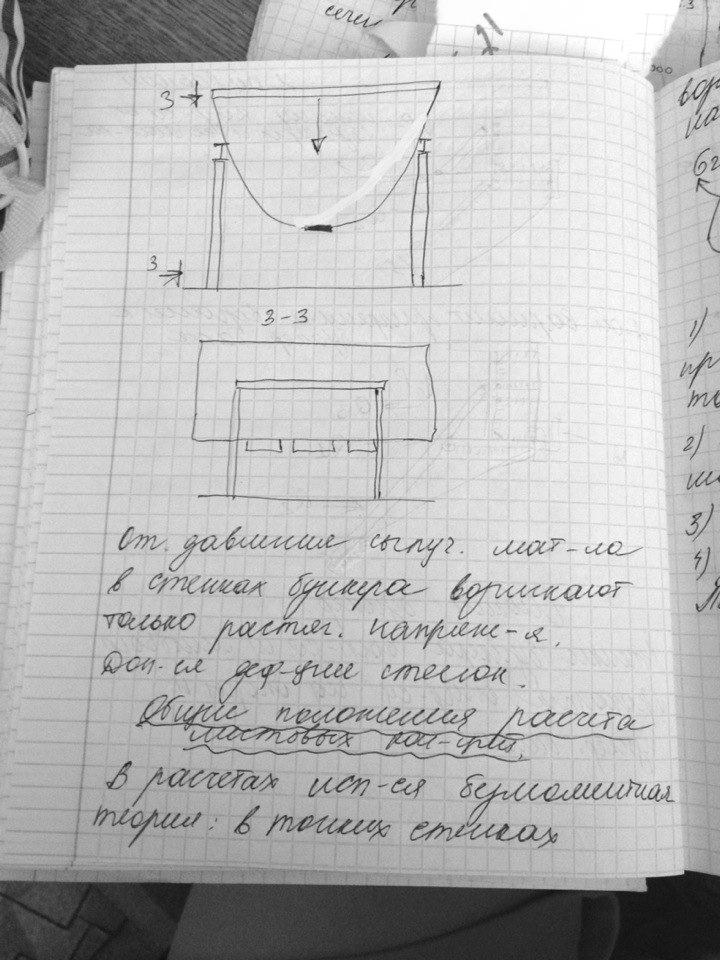 сечен
21
000
3
3
3-3
От. давления сыпуч. мат-ла
в стенках бункера возникают
только растяг. напряж-я.
Доп-ся деф-ции стенок.
Общие положения расчета
листовых кон-ций.
В расчетах исп-ся безмоментная
теория: в тонких стенках
1)
пр
2)
3)
4)